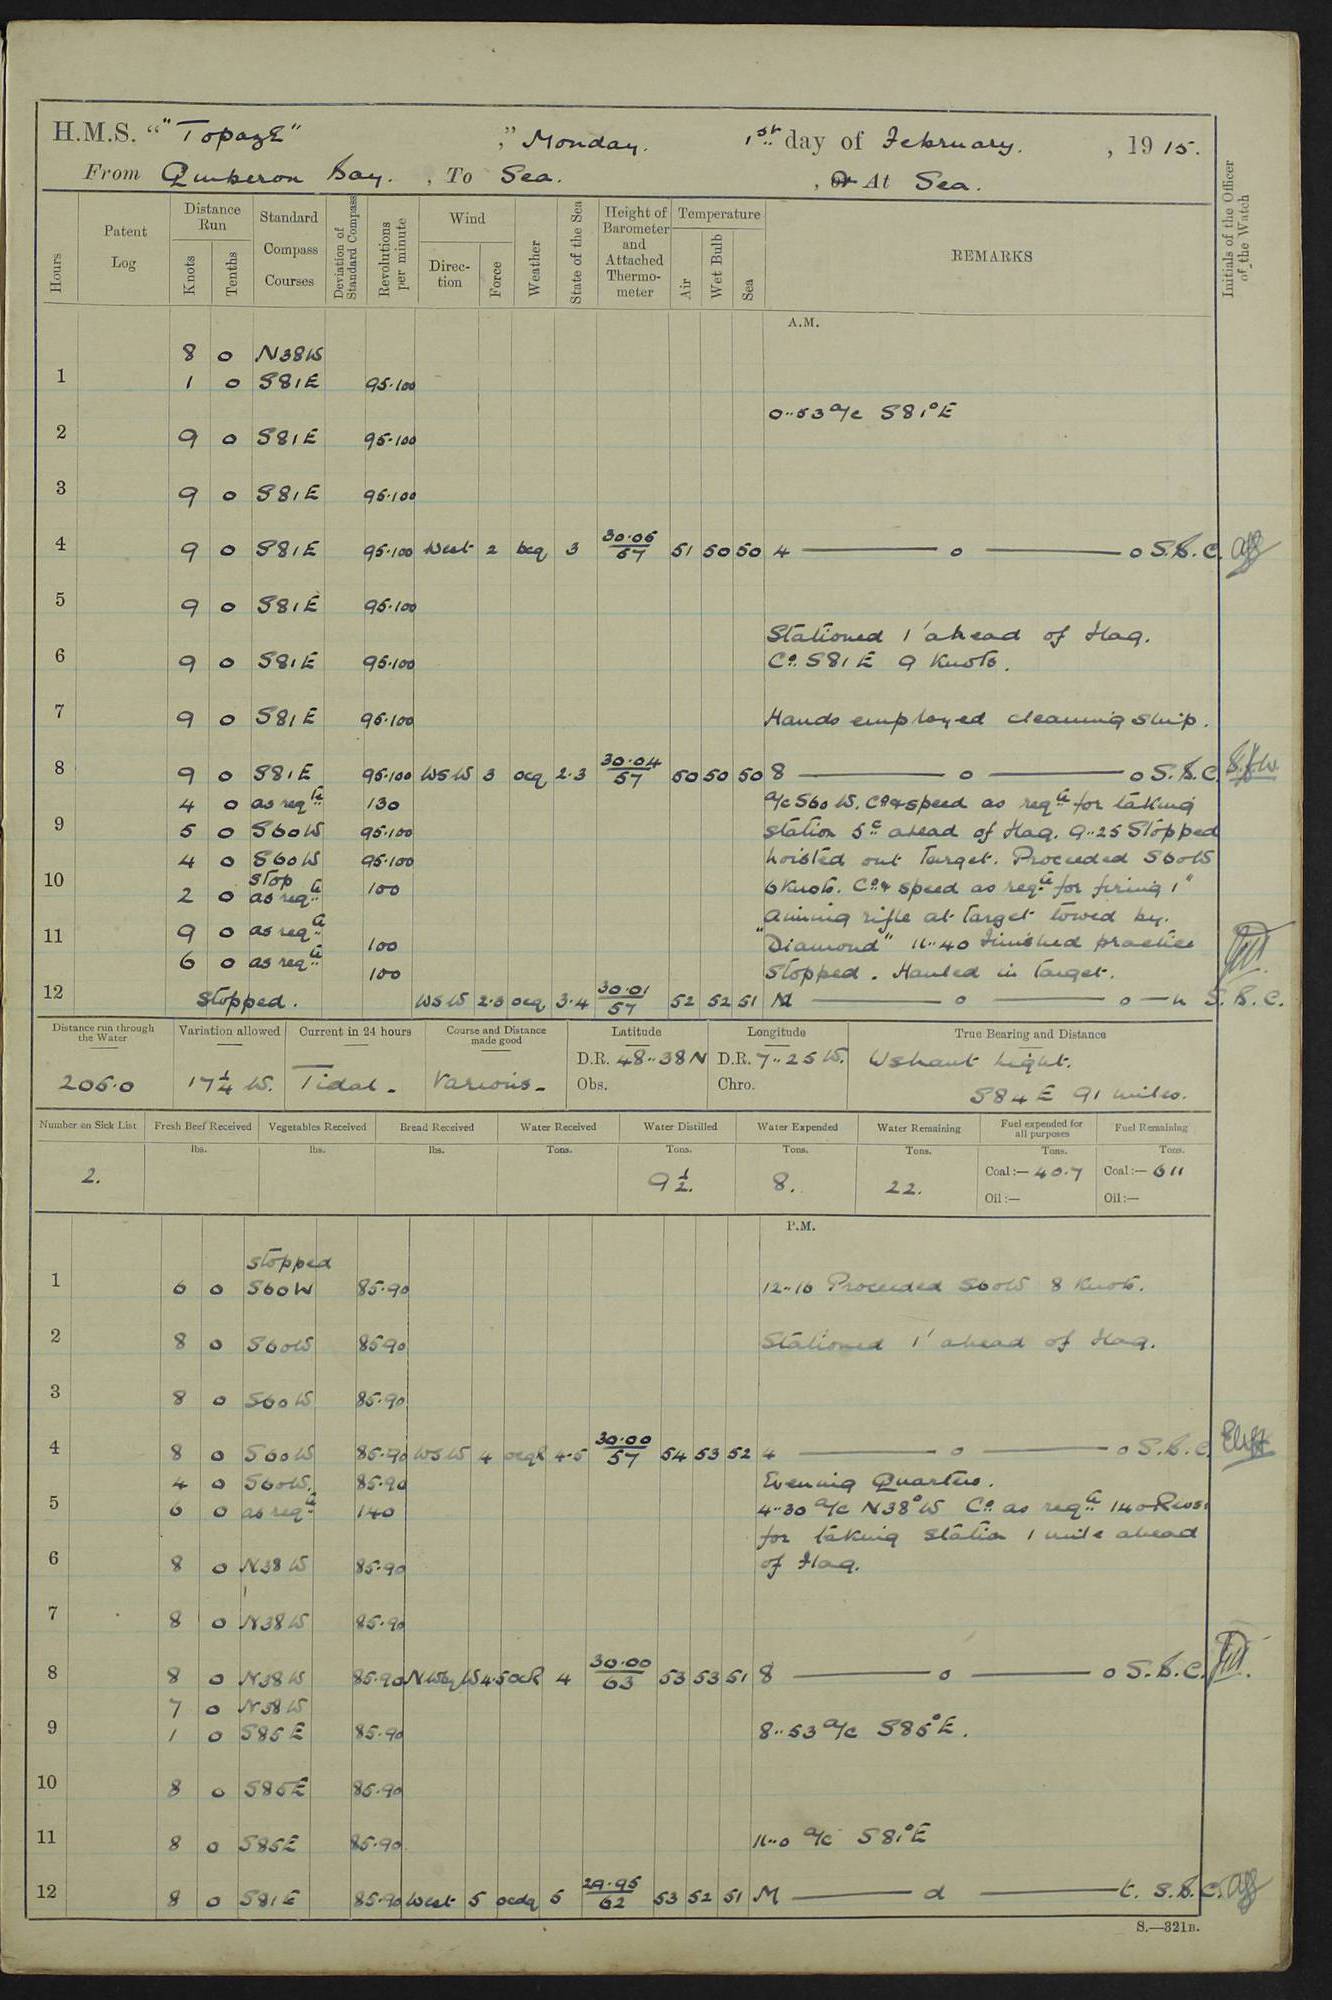 H.M.S. "" Topaze" ," Monday. 1st day of February. , 19 15.
From Quiberon Bay. , To Sea. , or At Sea.
Hours
Patent Log
Distance Run
Knots
Tenths
Standard Compass Courses
Deviation of Standard Compass
Revolutions per minute
Wind
Direction
Force
Weather
State of the Sea
Height of Barometer and Attached Thermometer
Temperature
Air
Wet Bulb
Sea
REMARKS
Initials of the Officer of the Watch
A.M.
8 0 N38W
1 1 0 S81E 95·100
0··53 a/c S81°E
2 9 0 S81E 95·100
3 9 0 S81E 95·100
4 9 0 S81E 95·100 West 2 bcq 3 30·05/57 51 50 50 4 — o — o S.B.C.
5 9 0 S81E 95·100
Stationed 1' ahead of Flag.
6 9 0 S81E 95·100 Co. S81E 9 Knots.
7 9 0 S81E 95·100 Hands employed cleaning ship.
8 9 0 S81E 95·100 WSW 3 ocq 2·3 30·04/57 50 50 50 8 — o — o S.B.C.
4 0 as reqte 130 a/c S60W. Co & speed as reqte for taking
9 5 0 S60W 95·100 station 5c ahead of Flag. 9··25 Stopped
4 0 S60W 95·100 hoisted out target. Proceeded S60W
10 stop
2 0 as reqte 100 6 Knots. Co & speed as reqte for firing 1"
aiming rifle at target towed by
11 9 0 as reqte 100 "Diamond" 11··40 Finished practice
6 0 as reqte 100 stopped. Hauled in target.
12 Stopped. WSW 2·3 ocq 3·4 30·01/57 52 52 51 N — o — o — n S.B.C.
Distance run through the Water
Variation allowed
Current in 24 hours
Course and Distance made good
Latitude
Longitude
True Bearing and Distance
205·0 17 1/4 W. Tidal - Various -
D.R. 48··38N D.R. 7··25W. Ushant Light.
Obs. Chro. S84E 91 miles.
Number on Sick List
Fresh Beef Received
Vegetables Received
Bread Received
Water Received
Water Distilled
Water Expended
Water Remaining
Fuel expended for all purposes
Fuel Remaining
lbs. lbs. lbs. Tons. Tons. Tons. Tons. Tons. Tons.
2. 9 1/2. 8. 22. Coal:— 40·7 Coal:— 611
Oil:— Oil:—
P.M.
stopped
1 6 0 S60W 85·90 12··10 Proceeded S60W 8 Knots.
2 8 0 S60W 85·90 Stationed 1' ahead of Flag.
3 8 0 S60W 85·90
4 8 0 S60W 85·90 WSW 4 ocqR 4·5 30·00/57 54 53 52 4 — o — o S.B.C.
4 0 S60W. 85·90 Evening Quarters.
5 6 0 as reqte 140 4··30 a/c N38°W Co. as reqte 140 Revs:
for taking station 1 mile ahead
6 8 0 N38W 85·90 of Flag.
7 8 0 N38W 85·90
8 8 0 N38W 85·90 NWbyW 4·5 ocR 4 30·00/63 53 53 51 8 — o — o S.B.C.
7 0 N38W
9 1 0 S85E 85·90 8··53 a/c S85°E.
10 8 0 S85E 85·90
11 8 0 S85E 85·90 11··0 a/c S81°E
12 8 0 S81E 85·90 West 5 ocdq 5 29·95/62 53 52 51 M — d — t. S.B.C.
S.—321B.